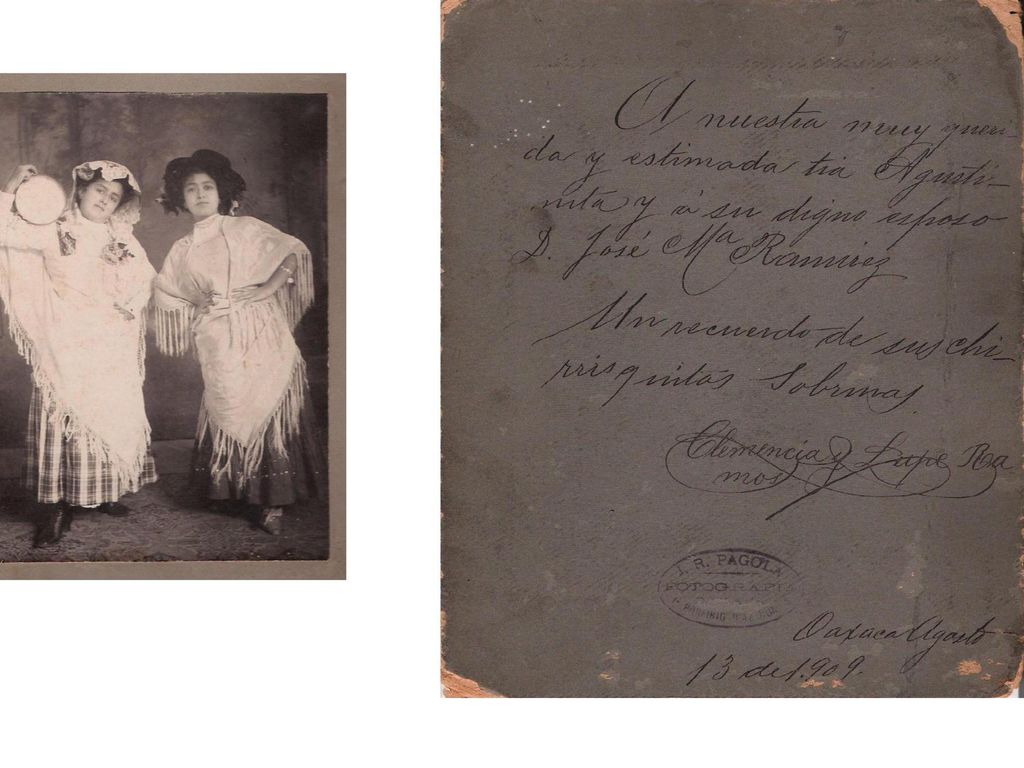 A nuestra muy queri-
da y estimada tia Agusti-
nita y á su digno esposo
D. José Ma Ramirez
Un recuerdo de sus chi-
rrisquitas Sobrinas
Clemencia y Lupe Ra
mos
J. R. PAGOLA
FOTOGRAFIA
Oaxaca Agosto
13 de 1.909.